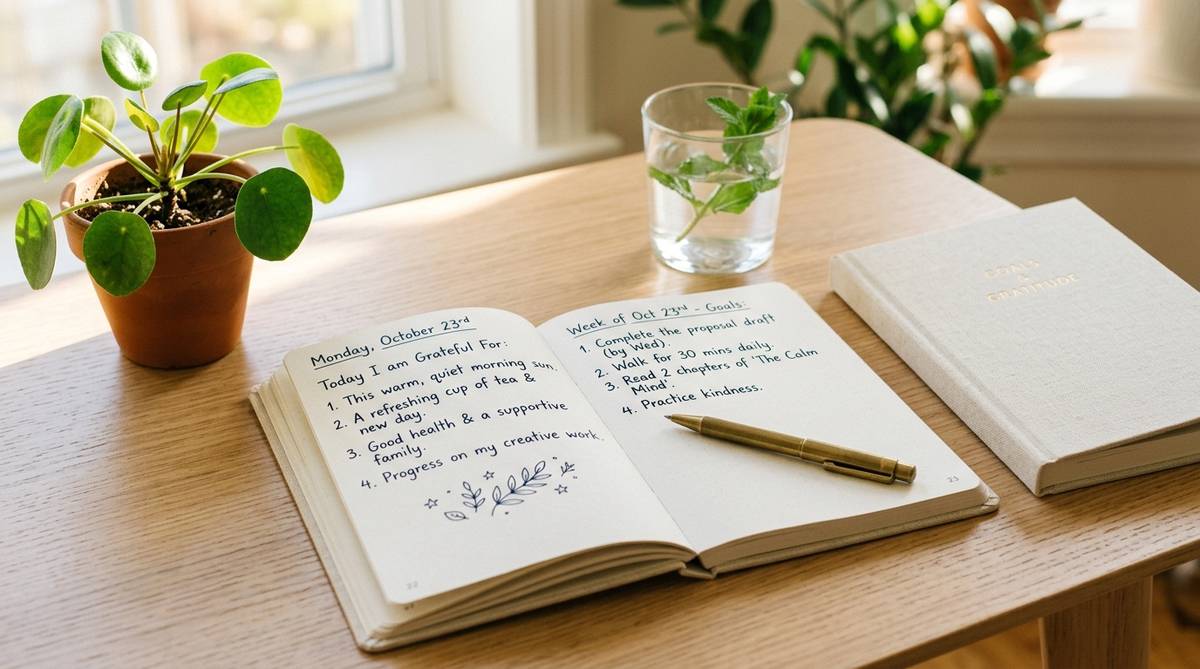 Monday, October 23rd
Today I am Grateful For:
1. This warm, quiet morning sun.
2. A refreshing cup of tea &
new day.
3. Good health & a supportive
family.
4. Progress on my creative work.
22
Week of Oct 23rd - Goals:
1. Complete the proposal draft
(by Wed).
2. Walk for 30 mins daily.
3. Read 2 chapters of 'The Calm
Mind'.
4. Practice kindness.
23
GOALS
&
GRATITUDE